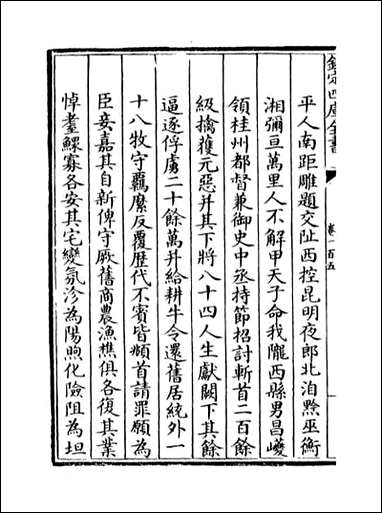 欽定四庫全書
卷一百五
平人南距雕題交阯西控昆明夜郎北洎黔巫衡
湘彌亘萬里人不解甲天子命我隴西縣男昌巙
領桂州都督兼御史中丞持節招討斬首二百餘
級擒獲元惡并其下將八十四人生獻闕下其餘
逼逐俘虜二十餘萬并給耕牛令還舊居統外一
十八牧守羈縻反覆歴代不賓皆頫首請罪願為
臣妾嘉其自新俾守厥舊商農漁樵俱各復其業
悼耋鰥寡各安其宅變氛沴為陽煦化險阻為坦